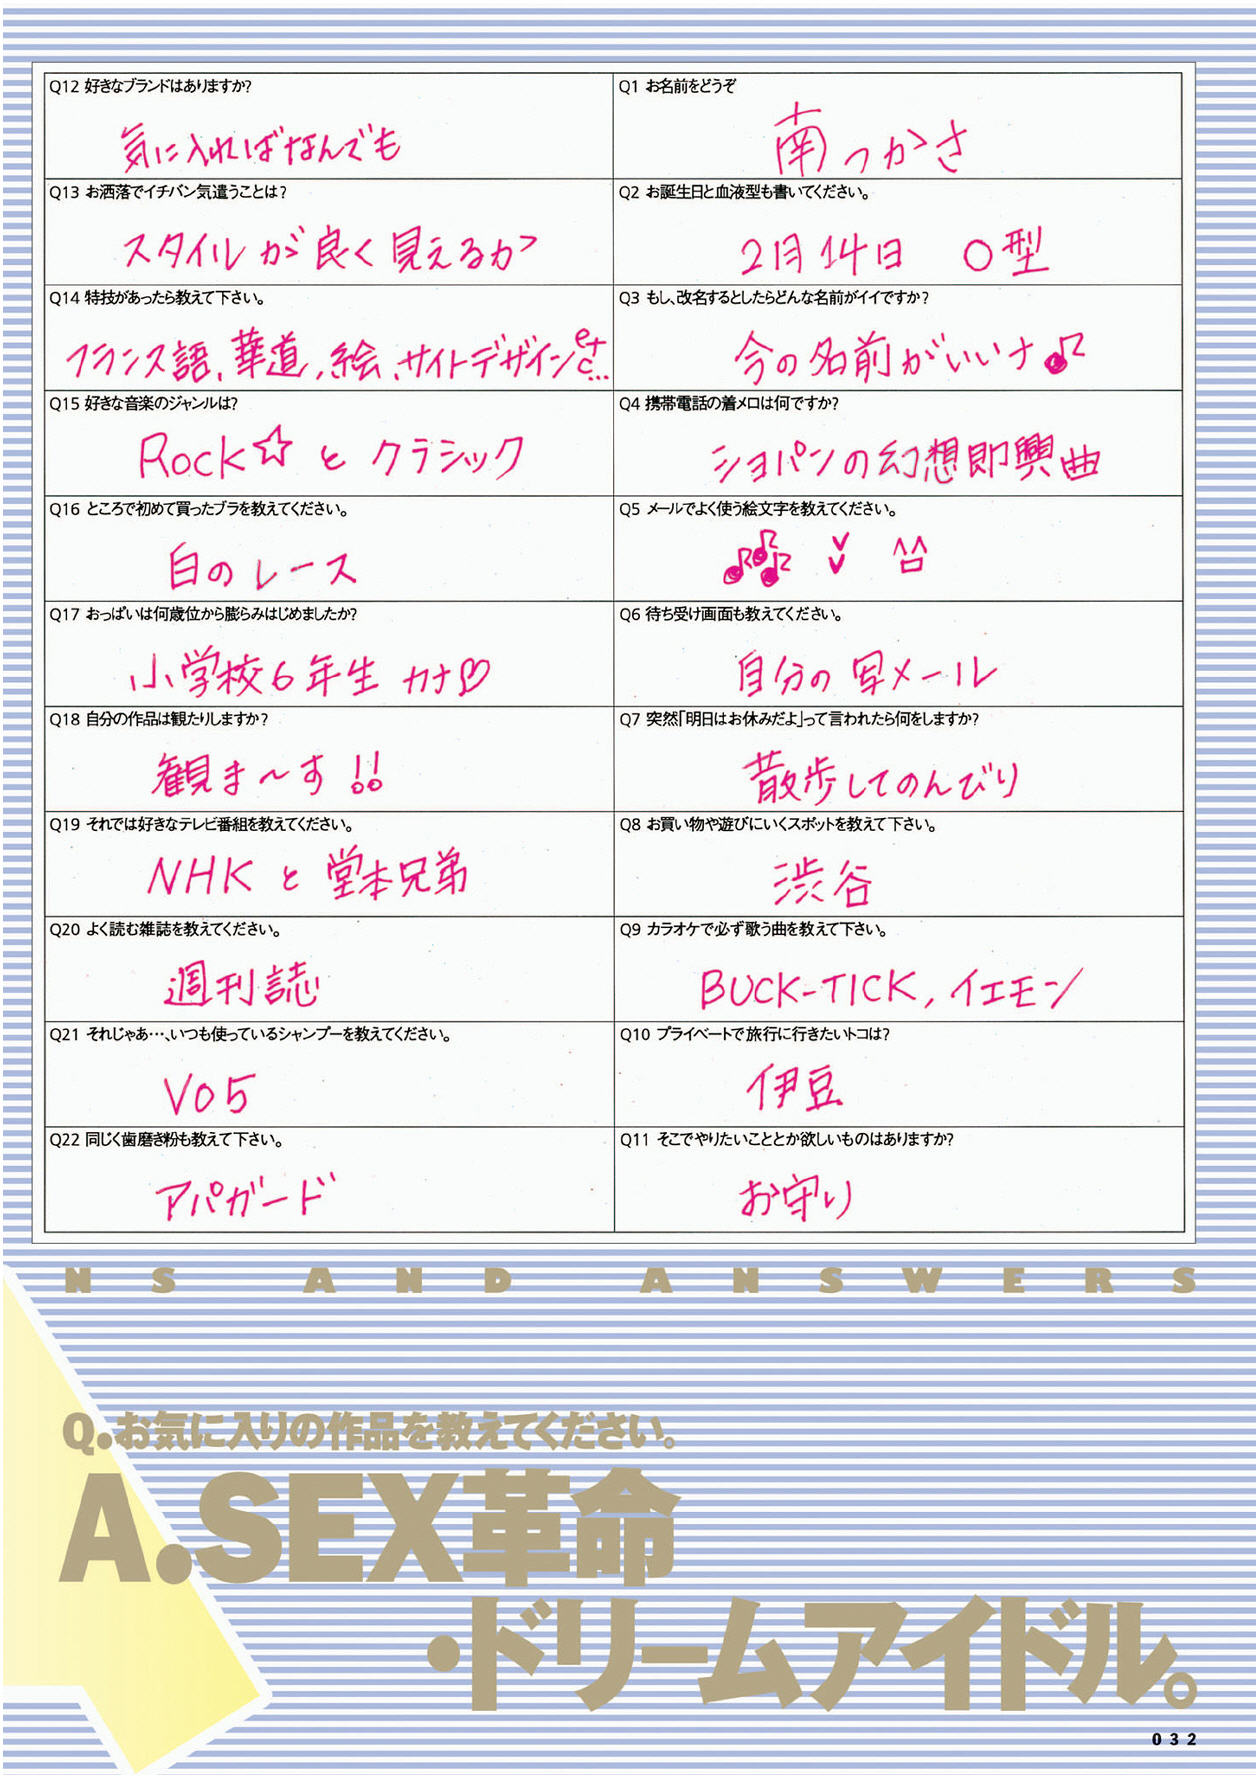 Q1 お名前をどうぞ
南つかさ
Q2 お誕生日と血液型も書いてください。
2月14日 O型
Q3 もし、改名するとしたらどんな名前がイイですか?
今の名前がいいナ♪
Q4 携帯電話の着メロは何ですか?
ショパンの幻想即興曲
Q5 メールでよく使う絵文字を教えてください。
Q6 待ち受け画面も教えてください。
自分の写メール
Q7 突然「明日はお休みだよ」って言われたら何をしますか?
散歩してのんびり
Q8 お買い物や遊びにいくスポットを教えて下さい。
渋谷
Q9 カラオケで必ず歌う曲を教えて下さい。
BUCK-TICK, イエモン
Q10 プライベートで旅行に行きたいトコは?
伊豆
Q11 そこでやりたいこととか欲しいものはありますか?
お守り
Q12 好きなブランドはありますか?
気に入ればなんでも
Q13 お洒落でイチバン気遣うことは?
スタイルが良く見えるか
Q14 特技があったら教えて下さい。
フランス語、華道、絵、サイトデザインetc...
Q15 好きな音楽のジャンルは?
Rock☆とクラシック
Q16 ところで初めて買ったブラを教えてください。
白のレース
Q17 おっぱいは何歳位から膨らみはじめましたか?
小学校6年生カナ♡
Q18 自分の作品は観たりしますか?
観ま〜す!!
Q19 それでは好きなテレビ番組を教えてください。
NHKと堂本兄弟
Q20 よく読む雑誌を教えてください。
週刊誌
Q21 それじゃあ…、いつも使っているシャンプーを教えてください。
VO5
Q22 同じく歯磨き粉も教えて下さい。
アパガード
NS AND ANSWERS
Q.お気に入りの作品を教えてください。
A.SEX革命
・ドリームアイドル。
032